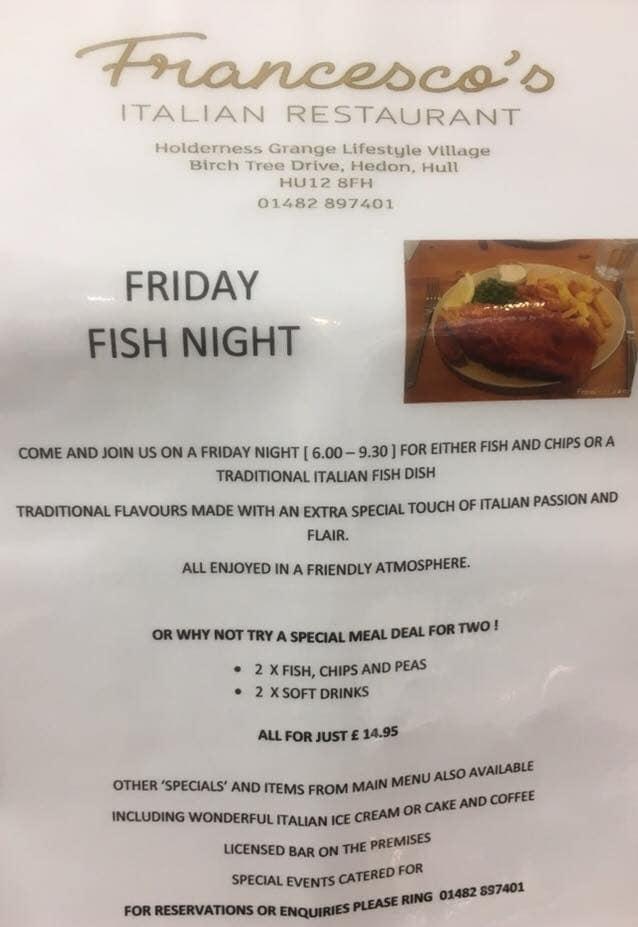 Francesco's
ITALIAN RESTAURANT
Holderness Grange Lifestyle Village
Birch Tree Drive, Hedon, Hull
HU12 8FH
01482 897401
FRIDAY
FISH NIGHT
COME AND JOIN US ON A FRIDAY NIGHT [ 6.00 – 9.30 ] FOR EITHER FISH AND CHIPS OR A
TRADITIONAL ITALIAN FISH DISH
TRADITIONAL FLAVOURS MADE WITH AN EXTRA SPECIAL TOUCH OF ITALIAN PASSION AND
FLAIR.
ALL ENJOYED IN A FRIENDLY ATMOSPHERE.
OR WHY NOT TRY A SPECIAL MEAL DEAL FOR TWO !
• 2 X FISH, CHIPS AND PEAS
• 2 X SOFT DRINKS
ALL FOR JUST £ 14.95
OTHER 'SPECIALS' AND ITEMS FROM MAIN MENU ALSO AVAILABLE
INCLUDING WONDERFUL ITALIAN ICE CREAM OR CAKE AND COFFEE
LICENSED BAR ON THE PREMISES
SPECIAL EVENTS CATERED FOR
FOR RESERVATIONS OR ENQUIRIES PLEASE RING 01482 897401